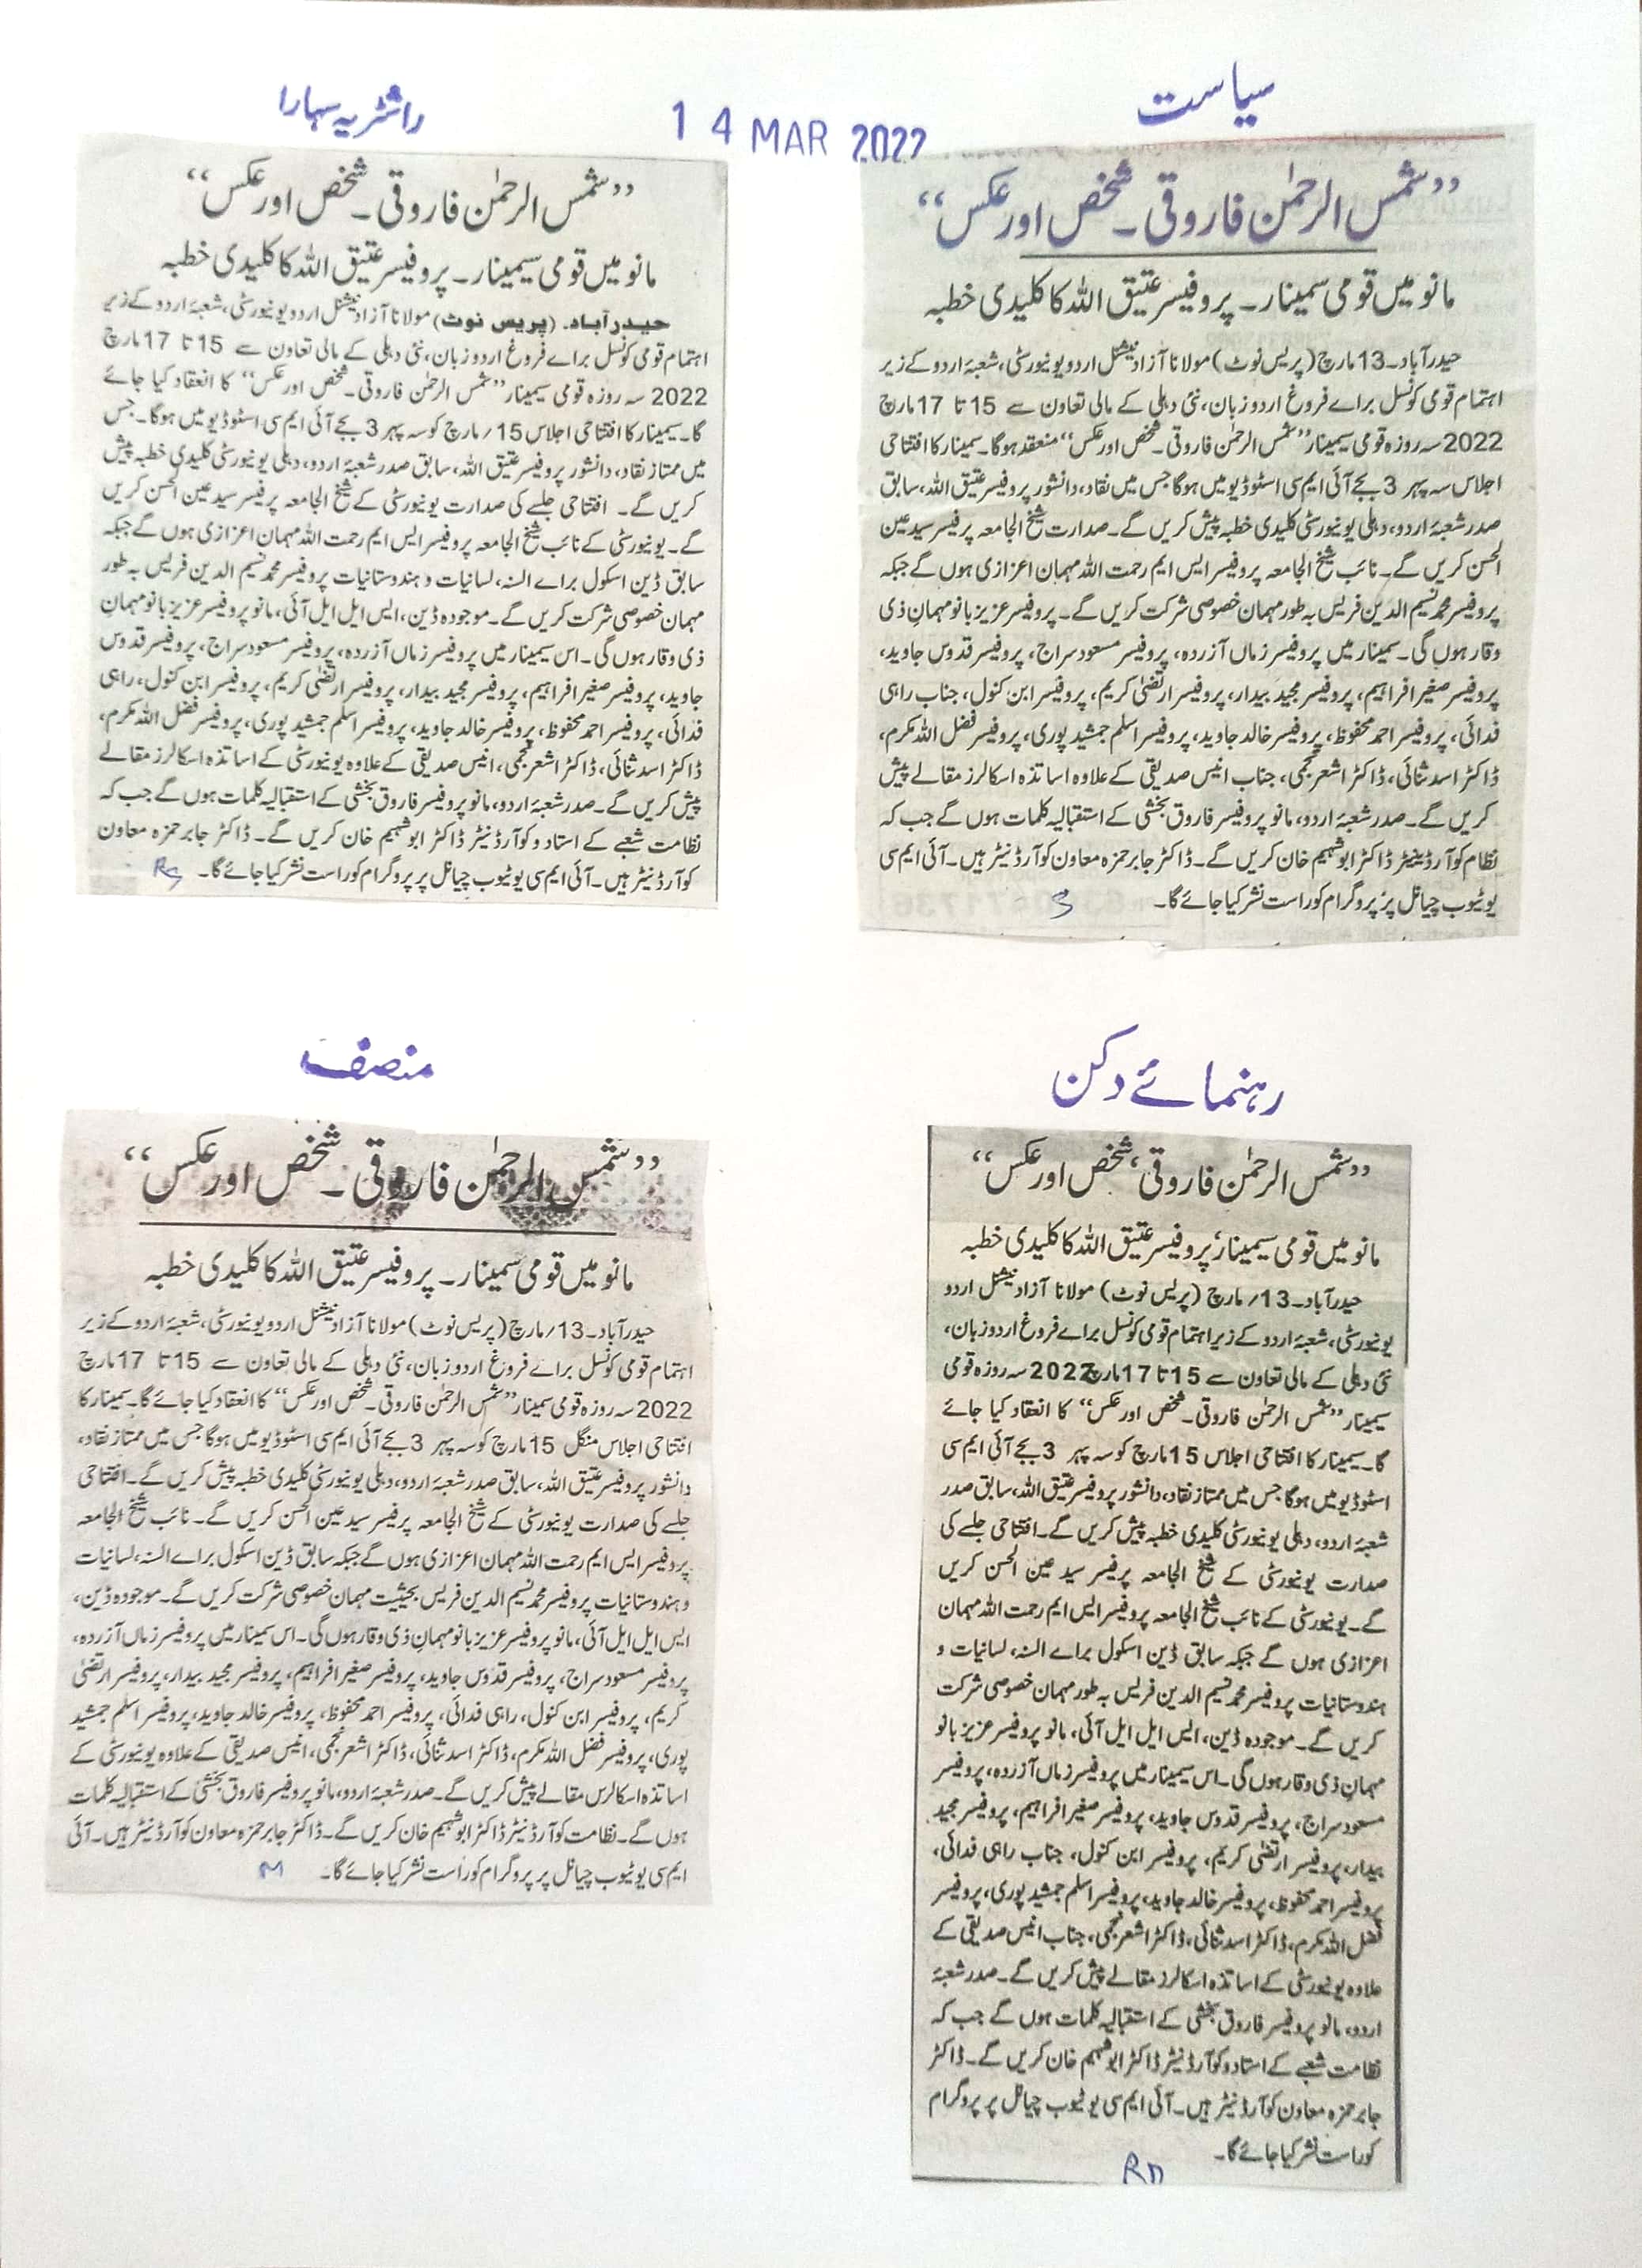 سیاست
14 MAR 2022
راشٹریہ سہارا
”شمس الرحمٰن فاروقی۔ شخص اور عکس“
مانو میں قومی سمینار۔ پروفیسر عتیق اللہ کا کلیدی خطبہ
حیدرآباد۔13 مارچ (پریس نوٹ) مولانا آزاد نیشنل اردو یونیورسٹی، شعبۂ اردو کے زیر
اہتمام قومی کونسل براے فروغ اردو زبان، نئی دہلی کے مالی تعاون سے 15 تا 17 مارچ
2022 سہ روزہ قومی سمینار ”شمس الرحمٰن فاروقی۔ شخص اور عکس“ منعقد ہوگا۔ سمینار کا افتتاحی
اجلاس سہ پہر 3 بجے آئی ایم سی اسٹوڈیو میں ہوگا جس میں نقاد، دانشور پروفیسر عتیق اللہ، سابق
صدر شعبۂ اردو، دہلی یونیورسٹی کلیدی خطبہ پیش کریں گے۔ صدارت شیخ الجامعہ پرفیسر سید عین
الحسن کریں گے۔ نائب شیخ الجامعہ پروفیسر ایس ایم رحمت اللہ مہمان اعزازی ہوں گے جبکہ
پروفیسر محمد نسیم الدین فریس بہ طور مہمان خصوصی شرکت کریں گے۔ پروفیسر عزیز بانو مہمانِ ذی
وقار ہوں گی۔ سمینار میں پروفیسر زماں آزردہ، پروفیسر مسعود سراج، پروفیسر قدوس جاوید،
پروفیسر صغیر افراہیم، پروفیسر مجید بیدار، پروفیسر ارتضیٰ کریم، پروفیسر ابن کنول، جناب راہی
فدائی، پروفیسر احمد محفوظ، پروفیسر خالد جاوید، پروفیسر اسلم جمشید پوری، پروفیسر فضل اللہ مکرم،
ڈاکٹر اسد ثنائی، ڈاکٹر اشعر نجمی، جناب انیس صدیقی کے علاوہ اساتذہ اسکالرز مقالے پیش
کریں گے۔ صدر شعبۂ اردو، مانو پروفیسر فاروق بخشی کے استقبالیہ کلمات ہوں گے جب کہ
نظام کوآرڈینیٹر ڈاکٹر ابو شہیم خان کریں گے۔ ڈاکٹر جابر حمزہ معاون کوآرڈنیٹر ہیں۔ آئی ایم سی
یوٹیوب چیانل پر پروگرام کو راست نشر کیا جائے گا۔
S
”شمس الرحمٰن فاروقی۔ شخص اور عکس“
مانو میں قومی سیمینار۔ پروفیسر عتیق اللہ کا کلیدی خطبہ
حیدرآباد۔ (پریس نوٹ) مولانا آزاد نیشنل اردو یونیورسٹی، شعبۂ اردو کے زیر
اہتمام قومی کونسل براے فروغ اردو زبان، نئی دہلی کے مالی تعاون سے 15 تا 17 مارچ
2022 سہ روزہ قومی سیمینار ”شمس الرحمٰن فاروقی۔ شخص اور عکس“ کا انعقاد کیا جائے
گا۔ سیمینار کا افتتاحی اجلاس 15؍ مارچ کو سہ پہر 3 بجے آئی ایم سی اسٹوڈیو میں ہوگا۔ جس
میں ممتاز نقاد، دانشور پروفیسر عتیق اللہ، سابق صدر شعبۂ اردو، دہلی یونیورسٹی کلیدی خطبہ پیش
کریں گے۔ افتتاحی جلسے کی صدارت یونیورسٹی کے شیخ الجامعہ پرفیسر سید عین الحسن کریں
گے۔ یونیورسٹی کے نائب شیخ الجامعہ پروفیسر ایس ایم رحمت اللہ مہمان اعزازی ہوں گے جبکہ
سابق ڈین اسکول براے السنہ، لسانیات و ہندوستانیات پروفیسر محمد نسیم الدین فریس بہ طور
مہمان خصوصی شرکت کریں گے۔ موجودہ ڈین، ایس ایل ایل آئی، مانو پروفیسر عزیز بانو مہمانِ
ذی وقار ہوں گی۔ اس سیمینار میں پروفیسر زماں آزردہ، پروفیسر مسعود سراج، پروفیسر قدوس
جاوید، پروفیسر صغیر افراہیم، پروفیسر مجید بیدار، پروفیسر ارتضیٰ کریم، پروفیسر ابن کنول، راہی
فدائی، پروفیسر احمد محفوظ، پروفیسر خالد جاوید، پروفیسر اسلم جمشید پوری، پروفیسر فضل اللہ مکرم،
ڈاکٹر اسد ثنائی، ڈاکٹر اشعر نجمی، انیس صدیقی کے علاوہ یونیورسٹی کے اساتذہ اسکالرز مقالے
پیش کریں گے۔ صدر شعبۂ اردو، مانو پروفیسر فاروق بخشی کے استقبالیہ کلمات ہوں گے جب کہ
نظامت شعبے کے استاد و کوآرڈنیٹر ڈاکٹر ابو شہیم خان کریں گے۔ ڈاکٹر جابر حمزہ معاون
کوآرڈنیٹر ہیں۔ آئی ایم سی یوٹیوب چیانل پر پروگرام کو راست نشر کیا جائے گا۔
RS
رہنمائے دکن
”شمس الرحمٰن فاروقی، شخص اور عکس“
مانو میں قومی سیمینار، پروفیسر عتیق اللہ کا کلیدی خطبہ
حیدرآباد۔13؍ مارچ (پریس نوٹ) مولانا آزاد نیشنل اردو
یونیورسٹی، شعبۂ اردو کے زیر اہتمام قومی کونسل براے فروغ اردو زبان،
نئی دہلی کے مالی تعاون سے 15 تا 17 مارچ 2022 سہ روزہ قومی
سیمینار ”شمس الرحمٰن فاروقی۔ شخص اور عکس“ کا انعقاد کیا جائے
گا۔ سیمینار کا افتتاحی اجلاس 15 مارچ کو سہ پہر 3 بجے آئی ایم سی
اسٹوڈیو میں ہوگا جس میں ممتاز نقاد، دانشور پروفیسر عتیق اللہ، سابق صدر
شعبۂ اردو، دہلی یونیورسٹی کلیدی خطبہ پیش کریں گے۔ افتتاحی جلسے کی
صدارت یونیورسٹی کے شیخ الجامعہ پرفیسر سید عین الحسن کریں
گے۔ یونیورسٹی کے نائب شیخ الجامعہ پروفیسر ایس ایم رحمت اللہ مہمان
اعزازی ہوں گے جبکہ سابق ڈین اسکول براے السنہ، لسانیات و
ہندوستانیات پروفیسر محمد نسیم الدین فریس بہ طور مہمان خصوصی شرکت
کریں گے۔ موجودہ ڈین، ایس ایل ایل آئی، مانو پروفیسر عزیز بانو
مہمانِ ذی وقار ہوں گی۔ اس سیمینار میں پروفیسر زماں آزردہ، پروفیسر
مسعود سراج، پروفیسر قدوس جاوید، پروفیسر صغیر افراہیم، پروفیسر مجید
بیدار، پروفیسر ارتضیٰ کریم، پروفیسر ابن کنول، جناب راہی فدائی،
پروفیسر احمد محفوظ، پروفیسر خالد جاوید، پروفیسر اسلم جمشید پوری، پروفیسر
فضل اللہ مکرم، ڈاکٹر اسد ثنائی، ڈاکٹر اشعر نجمی، جناب انیس صدیقی کے
علاوہ یونیورسٹی کے اساتذہ اسکالرز مقالے پیش کریں گے۔ صدر شعبۂ
اردو، مانو پروفیسر فاروق بخشی کے استقبالیہ کلمات ہوں گے جب کہ
نظامت شعبے کے استاد و کوآرڈنیٹر ڈاکٹر ابو شہیم خان کریں گے۔ ڈاکٹر
جابر حمزہ معاون کوآرڈنیٹر ہیں۔ آئی ایم سی یوٹیوب چیانل پر پروگرام
کو راست نشر کیا جائے گا۔
RD
منصف
”شمس الرحمٰن فاروقی۔ شخص اور عکس“
مانو میں قومی سمینار۔ پروفیسر عتیق اللہ کا کلیدی خطبہ
حیدرآباد۔13؍ مارچ (پریس نوٹ) مولانا آزاد نیشنل اردو یونیورسٹی، شعبۂ اردو کے زیر
اہتمام قومی کونسل براے فروغ اردو زبان، نئی دہلی کے مالی تعاون سے 15 تا 17 مارچ
2022 سہ روزہ قومی سمینار ”شمس الرحمٰن فاروقی۔ شخص اور عکس“ کا انعقاد کیا جائے گا۔ سمینار کا
افتتاحی اجلاس منگل 15 مارچ کو سہ پہر 3 بجے آئی ایم سی اسٹوڈیو میں ہوگا جس میں ممتاز نقاد،
دانشور پروفیسر عتیق اللہ، سابق صدر شعبۂ اردو، دہلی یونیورسٹی کلیدی خطبہ پیش کریں گے۔ افتتاحی
جلسے کی صدارت یونیورسٹی کے شیخ الجامعہ پرفیسر سید عین الحسن کریں گے۔ نائب شیخ الجامعہ
پروفیسر ایس ایم رحمت اللہ مہمان اعزازی ہوں گے جبکہ سابق ڈین اسکول براے السنہ، لسانیات
و ہندوستانیات پروفیسر محمد نسیم الدین فریس بحیثیت مہمان خصوصی شرکت کریں گے۔ موجودہ ڈین،
ایس ایل ایل آئی، مانو پروفیسر عزیز بانو مہمانِ ذی وقار ہوں گی۔ اس سمینار میں پروفیسر زماں آزردہ،
پروفیسر مسعود سراج، پروفیسر قدوس جاوید، پروفیسر صغیر افراہیم، پروفیسر مجید بیدار، پروفیسر ارتضیٰ
کریم، پروفیسر ابن کنول، راہی فدائی، پروفیسر احمد محفوظ، پروفیسر خالد جاوید، پروفیسر اسلم جمشید
پوری، پروفیسر فضل اللہ مکرم، ڈاکٹر اسد ثنائی، ڈاکٹر اشعر نجمی، انیس صدیقی کے علاوہ یونیورسٹی کے
اساتذہ اسکالرس مقالے پیش کریں گے۔ صدر شعبۂ اردو، مانو پروفیسر فاروق بخشی کے استقبالیہ کلمات
ہوں گے۔ نظامت کوآرڈنیٹر ڈاکٹر ابو شہیم خان کریں گے۔ ڈاکٹر جابر حمزہ معاون کوآرڈنیٹر ہیں۔ آئی
ایم سی یوٹیوب چیانل پر پروگرام کو راست نشر کیا جائے گا۔
M